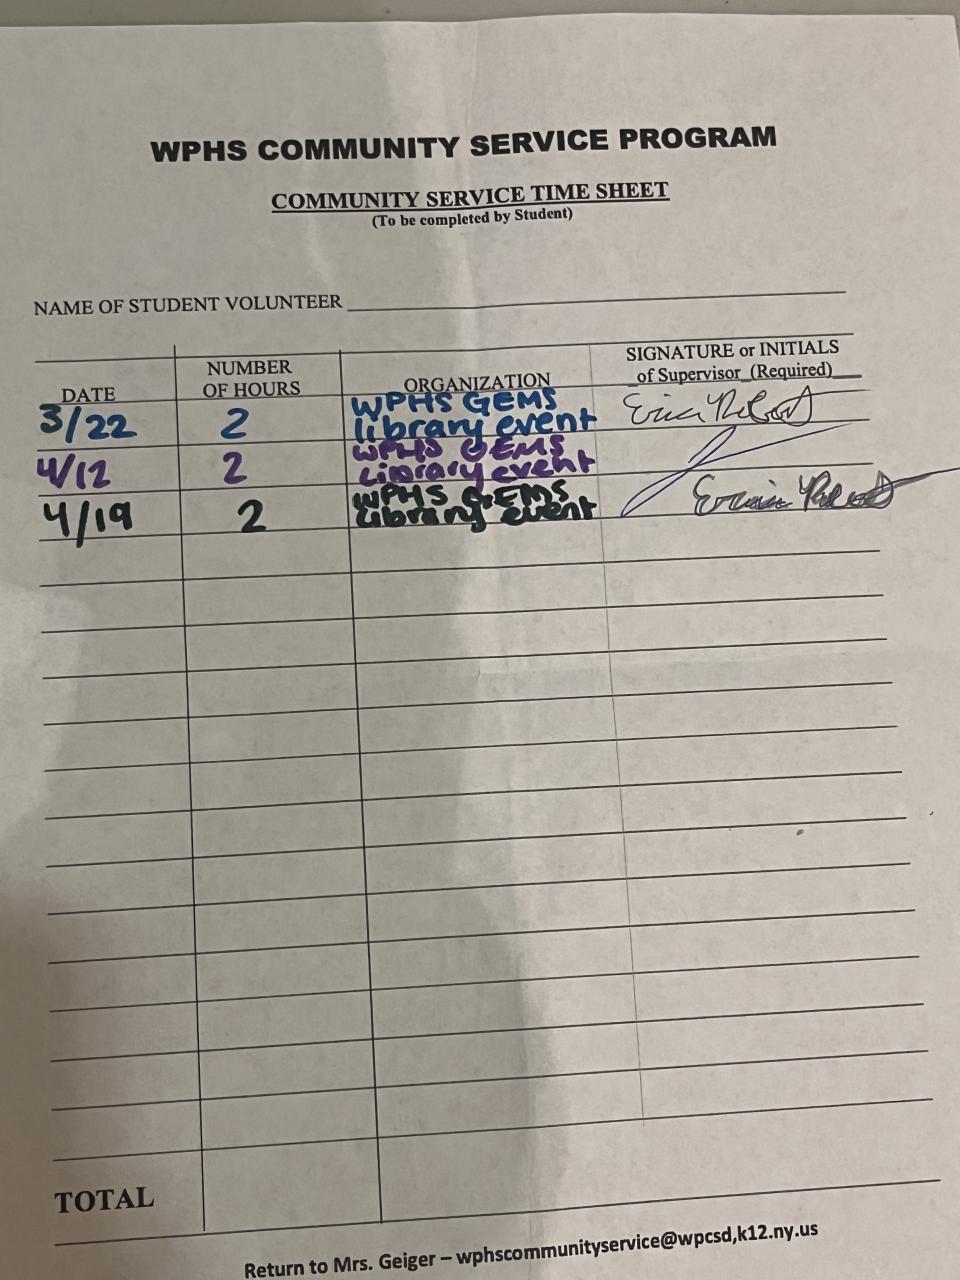 WPHS COMMUNITY SERVICE PROGRAM
COMMUNITY SERVICE TIME SHEET
(To be completed by Student)
NAME OF STUDENT VOLUNTEER
DATE
NUMBER
OF HOURS
ORGANIZATION
SIGNATURE or INITIALS
of Supervisor (Required)
3/22 2 WPHS GEMS
library event
4/12 2 WPHS GEMS
Library event
4/19 2 WPHS GEMS
Library event
TOTAL
Return to Mrs. Geiger – wphscommunityservice@wpcsd,k12.ny.us